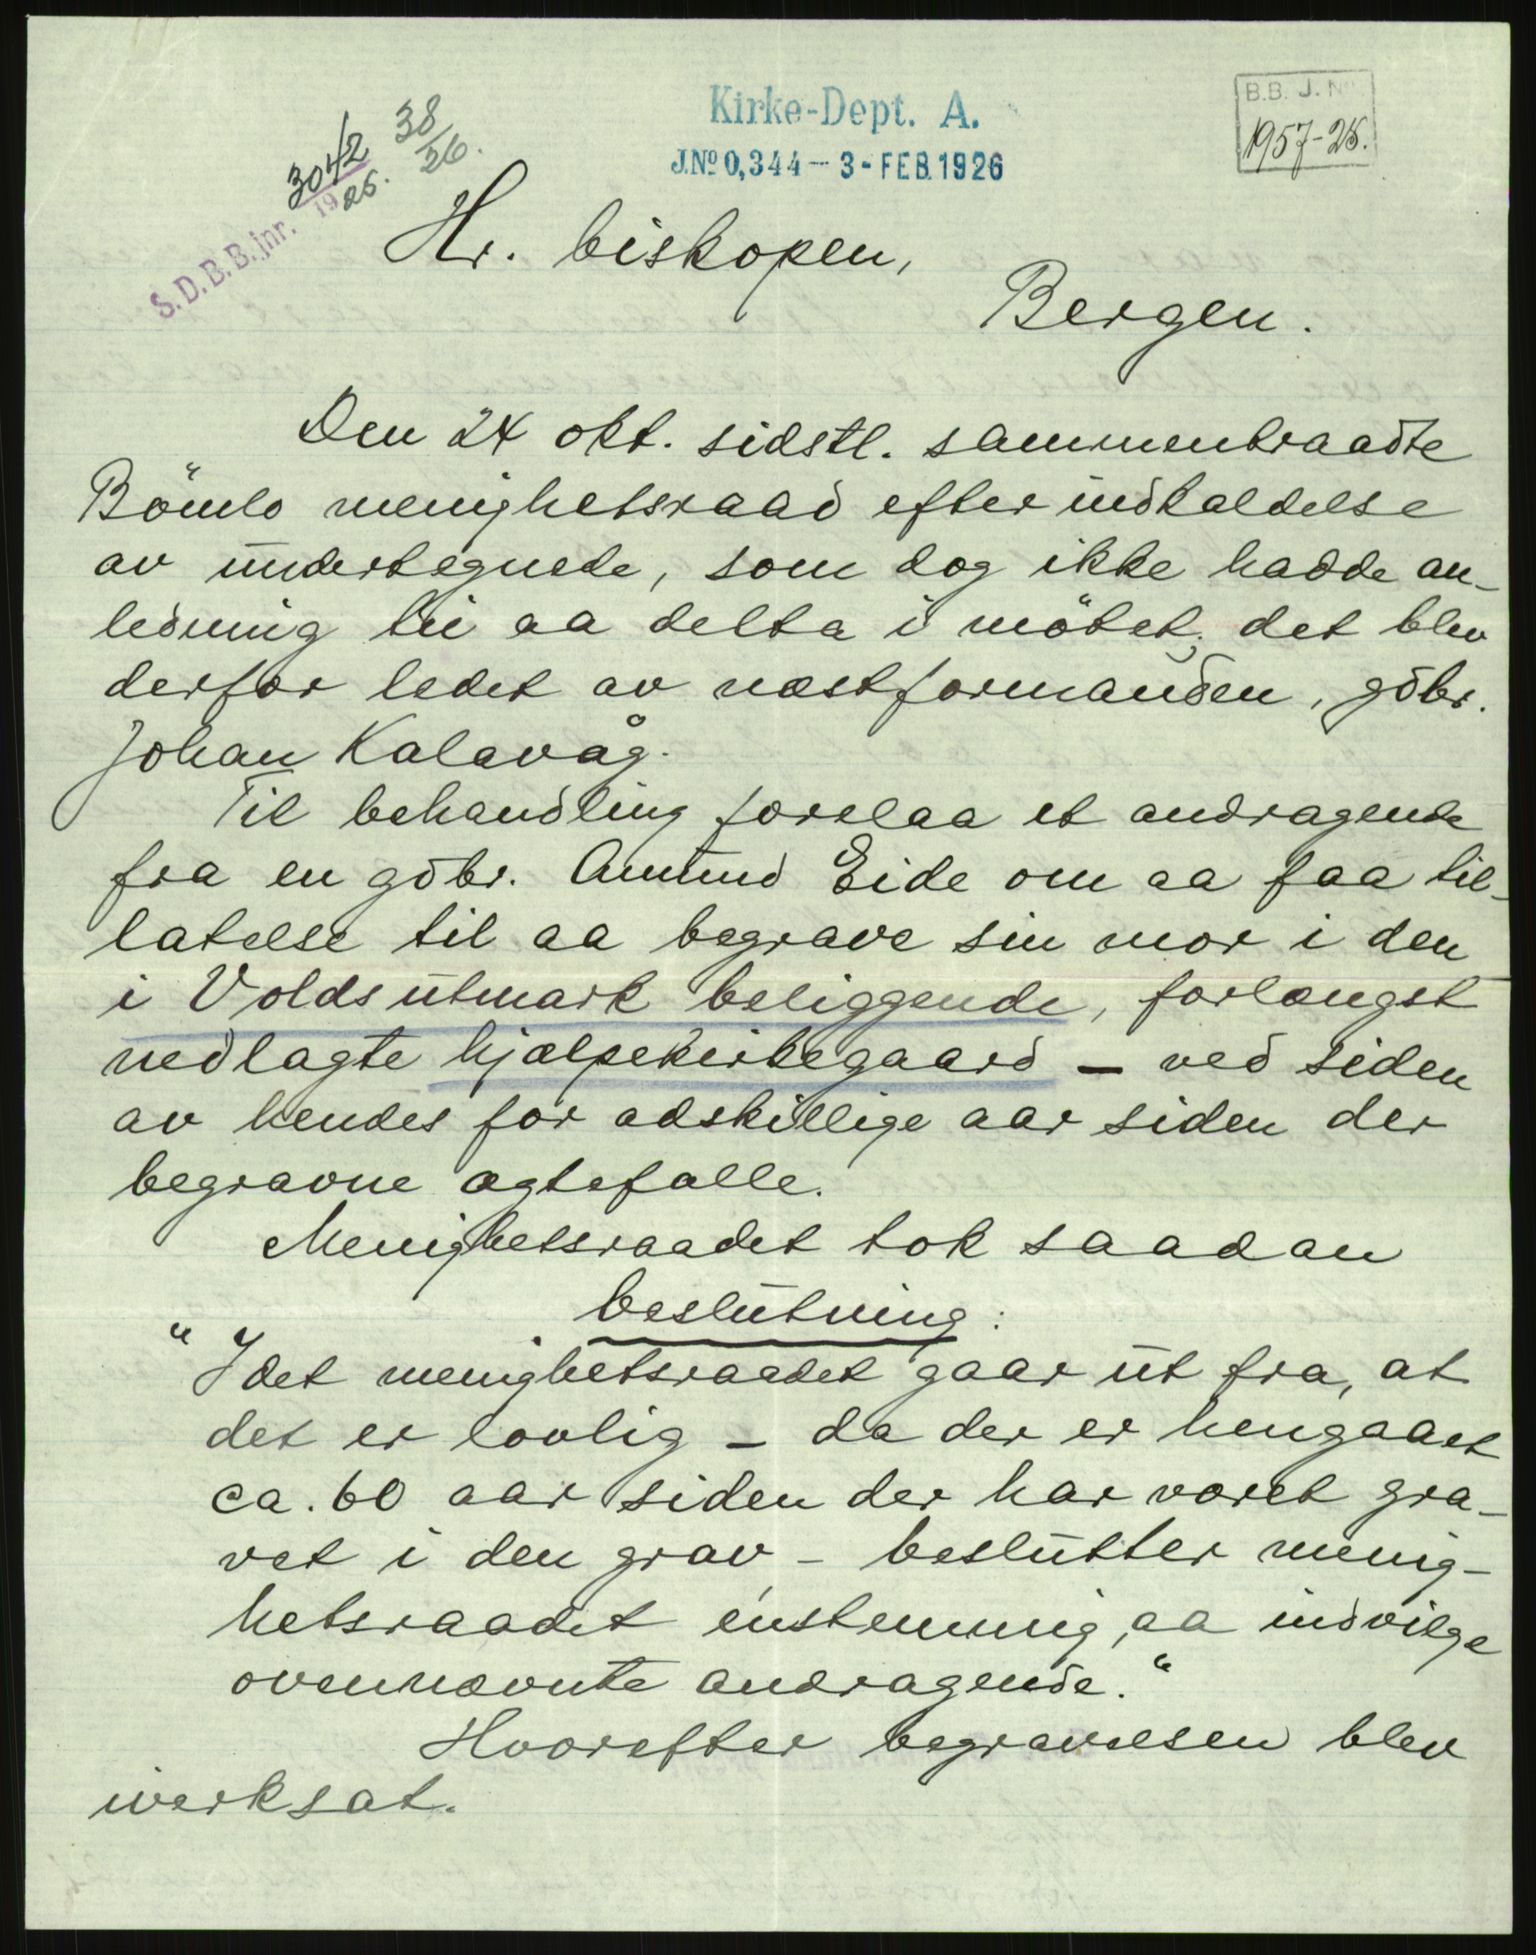 Kirke-Dept. A.
J.Nº 0,344 - 3 - FEB. 1926
B.B. J. Nº
1957-25.
S.D.B.B. jnr. 3042
1925.
38
26.
Hr. biskopen,
Bergen.
Den 24 okt. sidstl. sammentraadte
Bömlo menighetsraad efter indkaldelse
av undertegnede, som dog ikke hadde an-
ledning til aa delta i mötet; det blev
derfor ledet av næstformanden, gdbr.
Johan Kalavåg.
Til behandling forelaa et andragende
fra en gdbr. Amund Eide om aa faa til-
latelse til aa begrave sin mor i den
i Volds utmark beliggende, forlængst
nedlagte hjælpekirkegaard - ved siden
av hendes for adskillige aar siden der
begravne ægtefælle.
Menighetsraadet tok saadan
beslutning:
"Idet menighetsraadet gaar ut fra, at
det er lovlig - da der er hengaaet
ca. 60 aar siden der har været gra-
vet i den grav, - beslutter menig-
hetsraadet enstemmig, aa indvilge
ovennævnte andragende."
Hvorefter begravelsen blev
iverksat.